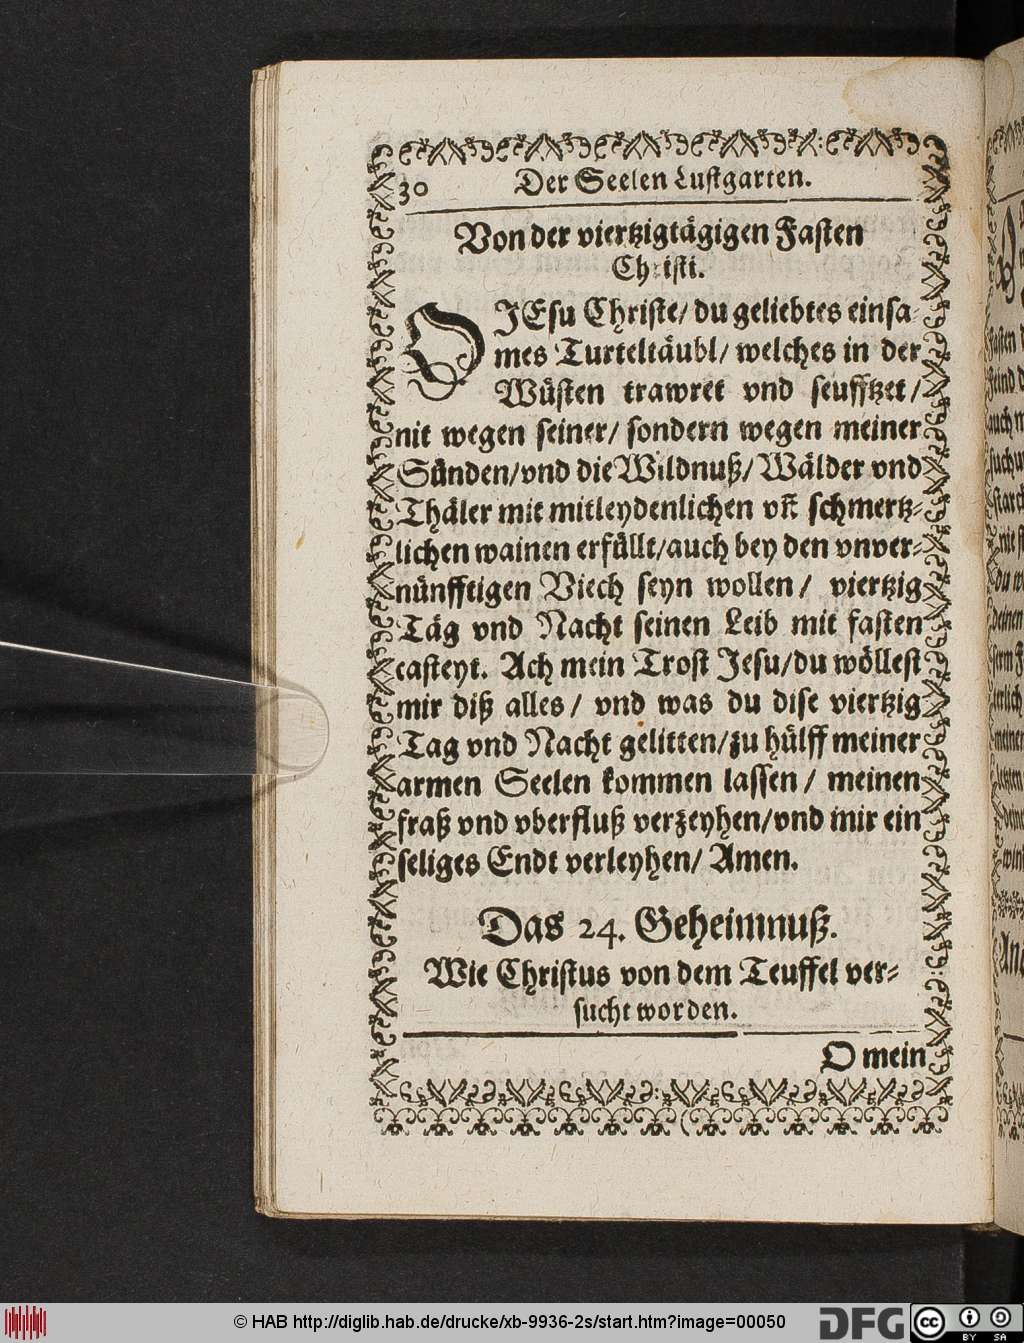 30
Der Seelen Lustgarten.
Von der viertzigtägigen Fasten
Christi.
O JEsu Christe/ du geliebtes einsa-
mes Turteltäubl/ welches in der
Wüsten trawret vnd seufftzet/
nit wegen seiner/ sondern wegen meiner
Sünden/vnd die Wildnuß/ Wälder vnd
Thäler mit mitleydenlichen vñ schmertz-
lichen wainen erfüllt/auch bey den vnver-
nünfftigen Viech seyn wollen/ viertzig
Täg vnd Nacht seinen Leib mit fasten
casteyt. Ach mein Trost Jesu/du wöllest
mir diß alles/ vnd was du dise viertzig
Tag vnd Nacht gelitten/zu hülff meiner
armen Seelen kommen lassen/ meinen
fraß vnd vberfluß verzeyhen/vnd mir ein
seliges Endt verleyhen/ Amen.
Das 24. Geheimnuß.
Wie Christus von dem Teuffel ver-
sucht worden.
O mein
© HAB http://diglib.hab.de/drucke/xb-9936-2s/start.htm?image=00050
DFG
cc
BY SA